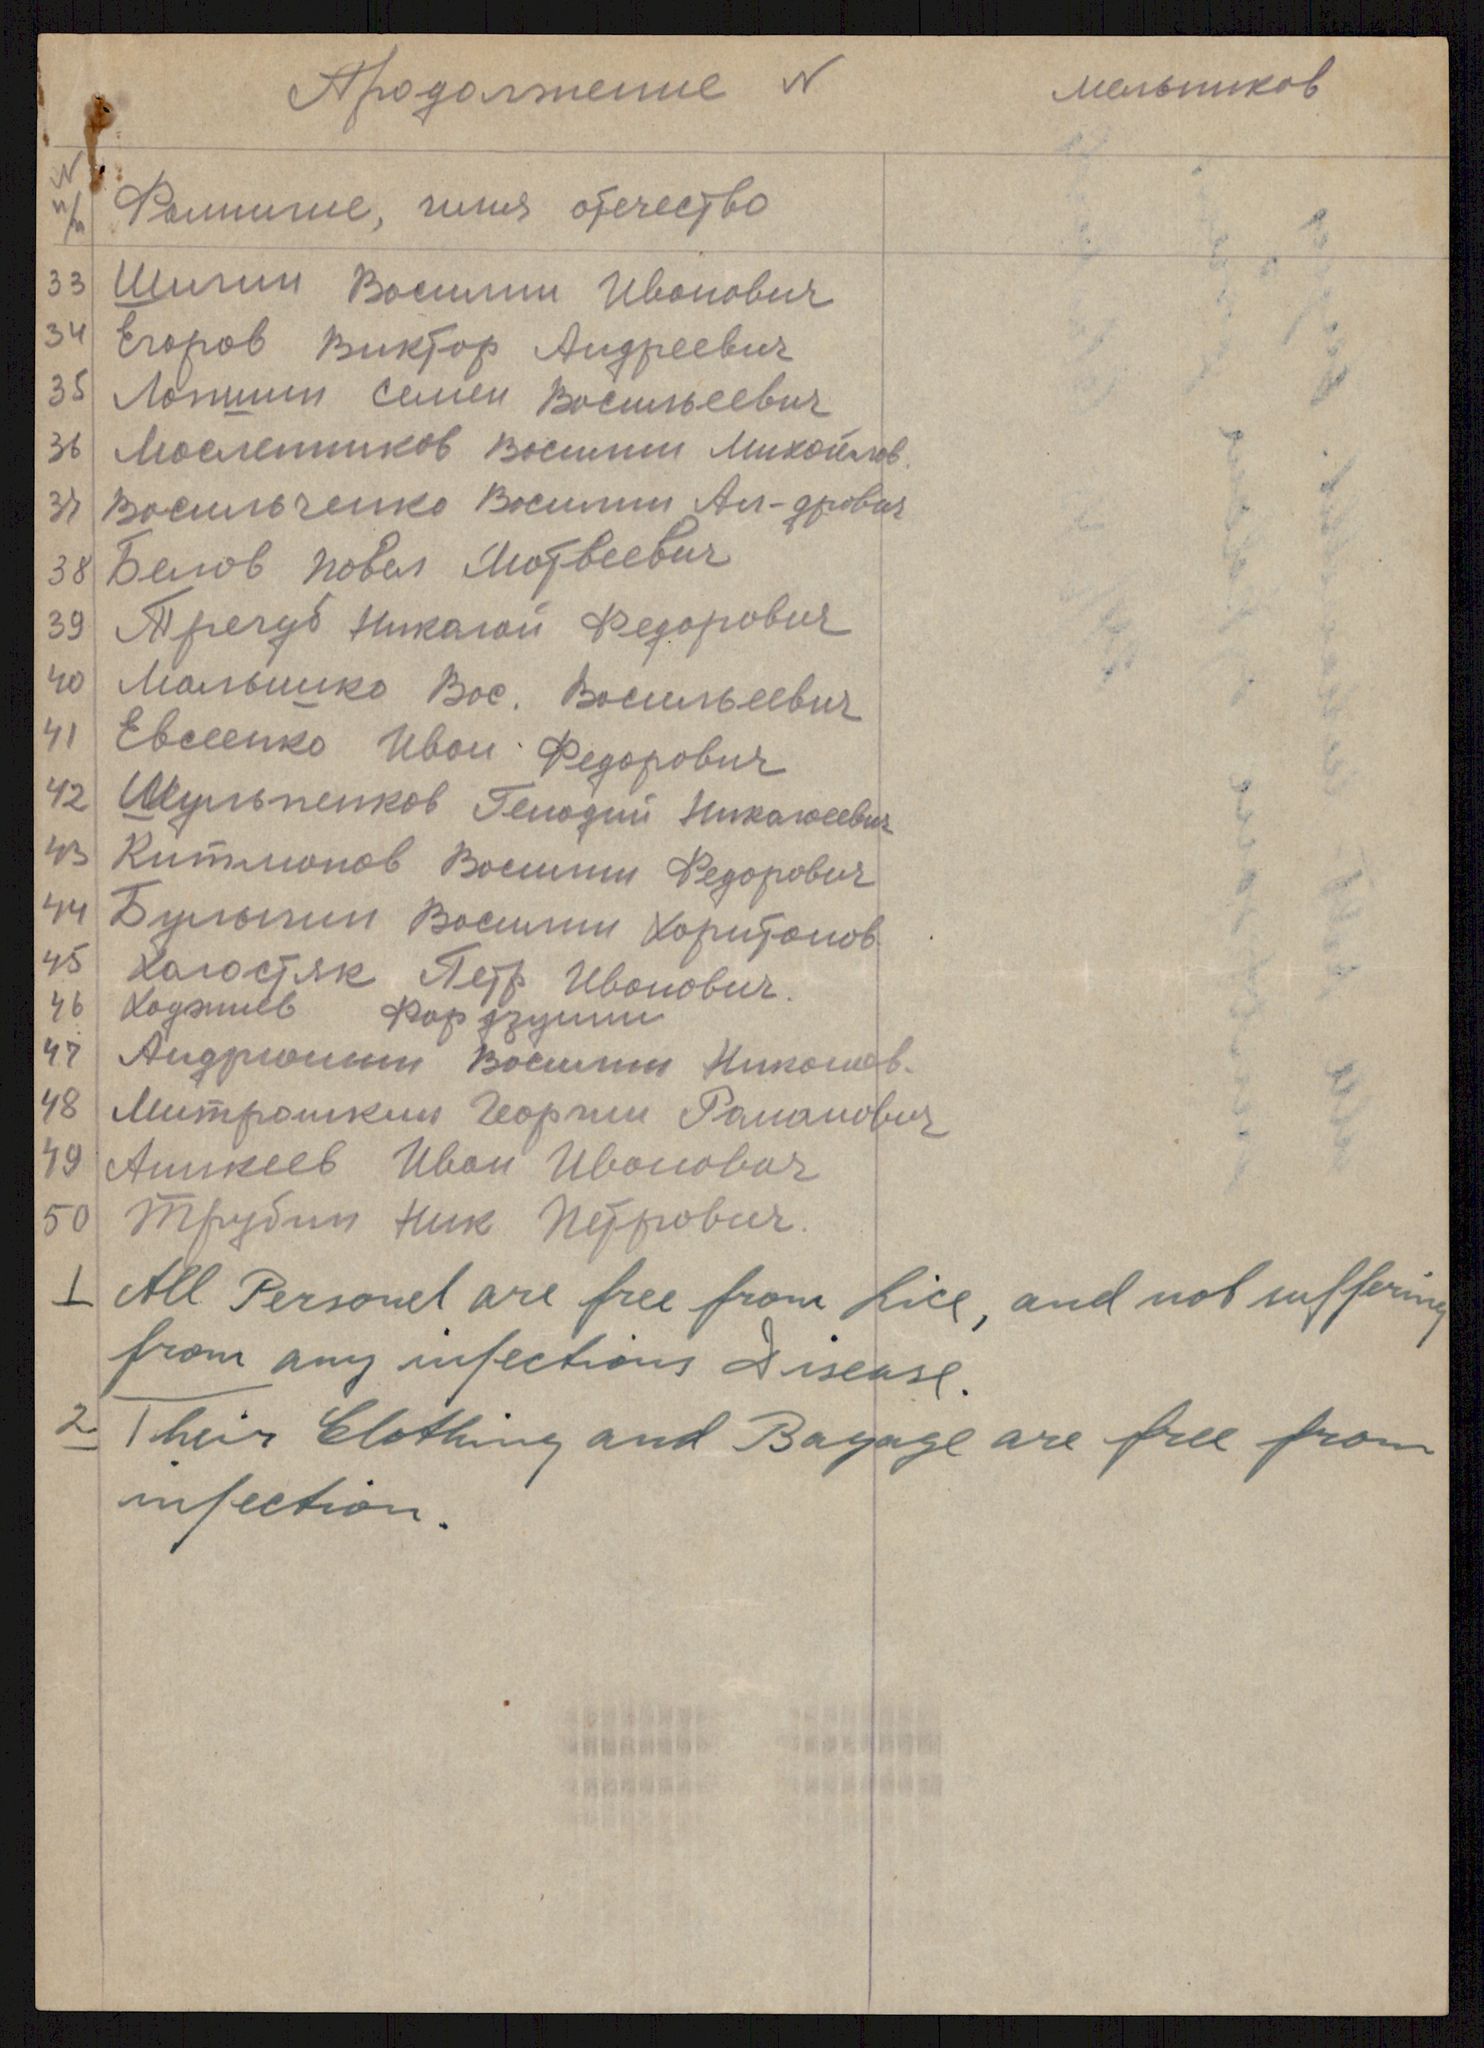 Продолжение N
Мельников
N п/п
Фамилие, имия отечество
33 Шигин Василии Иванович
34 Егоров Виктор Андреевич
35 Лапшин Семен Васильевич
36 Масленников Василии Михайлов.
37 Васильченко Василии Ал-дрович
38 Белов Павел Матвеевич
39 Трегуб Николай Федорович
40 Малышко Вас. Васильевич
41 Евсеенко Иван Федорович
42 Шульпенков Генадий Николаеевич
43 Китманов Василии Федорович
44 Булыгин Василии Харитонов
45 Халостяк Петр Иванович.
46 Хаджиев
47 Андрюшин Василии Николаев.
48 Митрошкин Георгии Раманович
49 Аникеев Иван Иванович
50 Трубин Ник Петрович.
1 All Personel are free from Lice, and not suffering
from any infections Disease.
2 Their Clothing and Bagage are free from
infection.